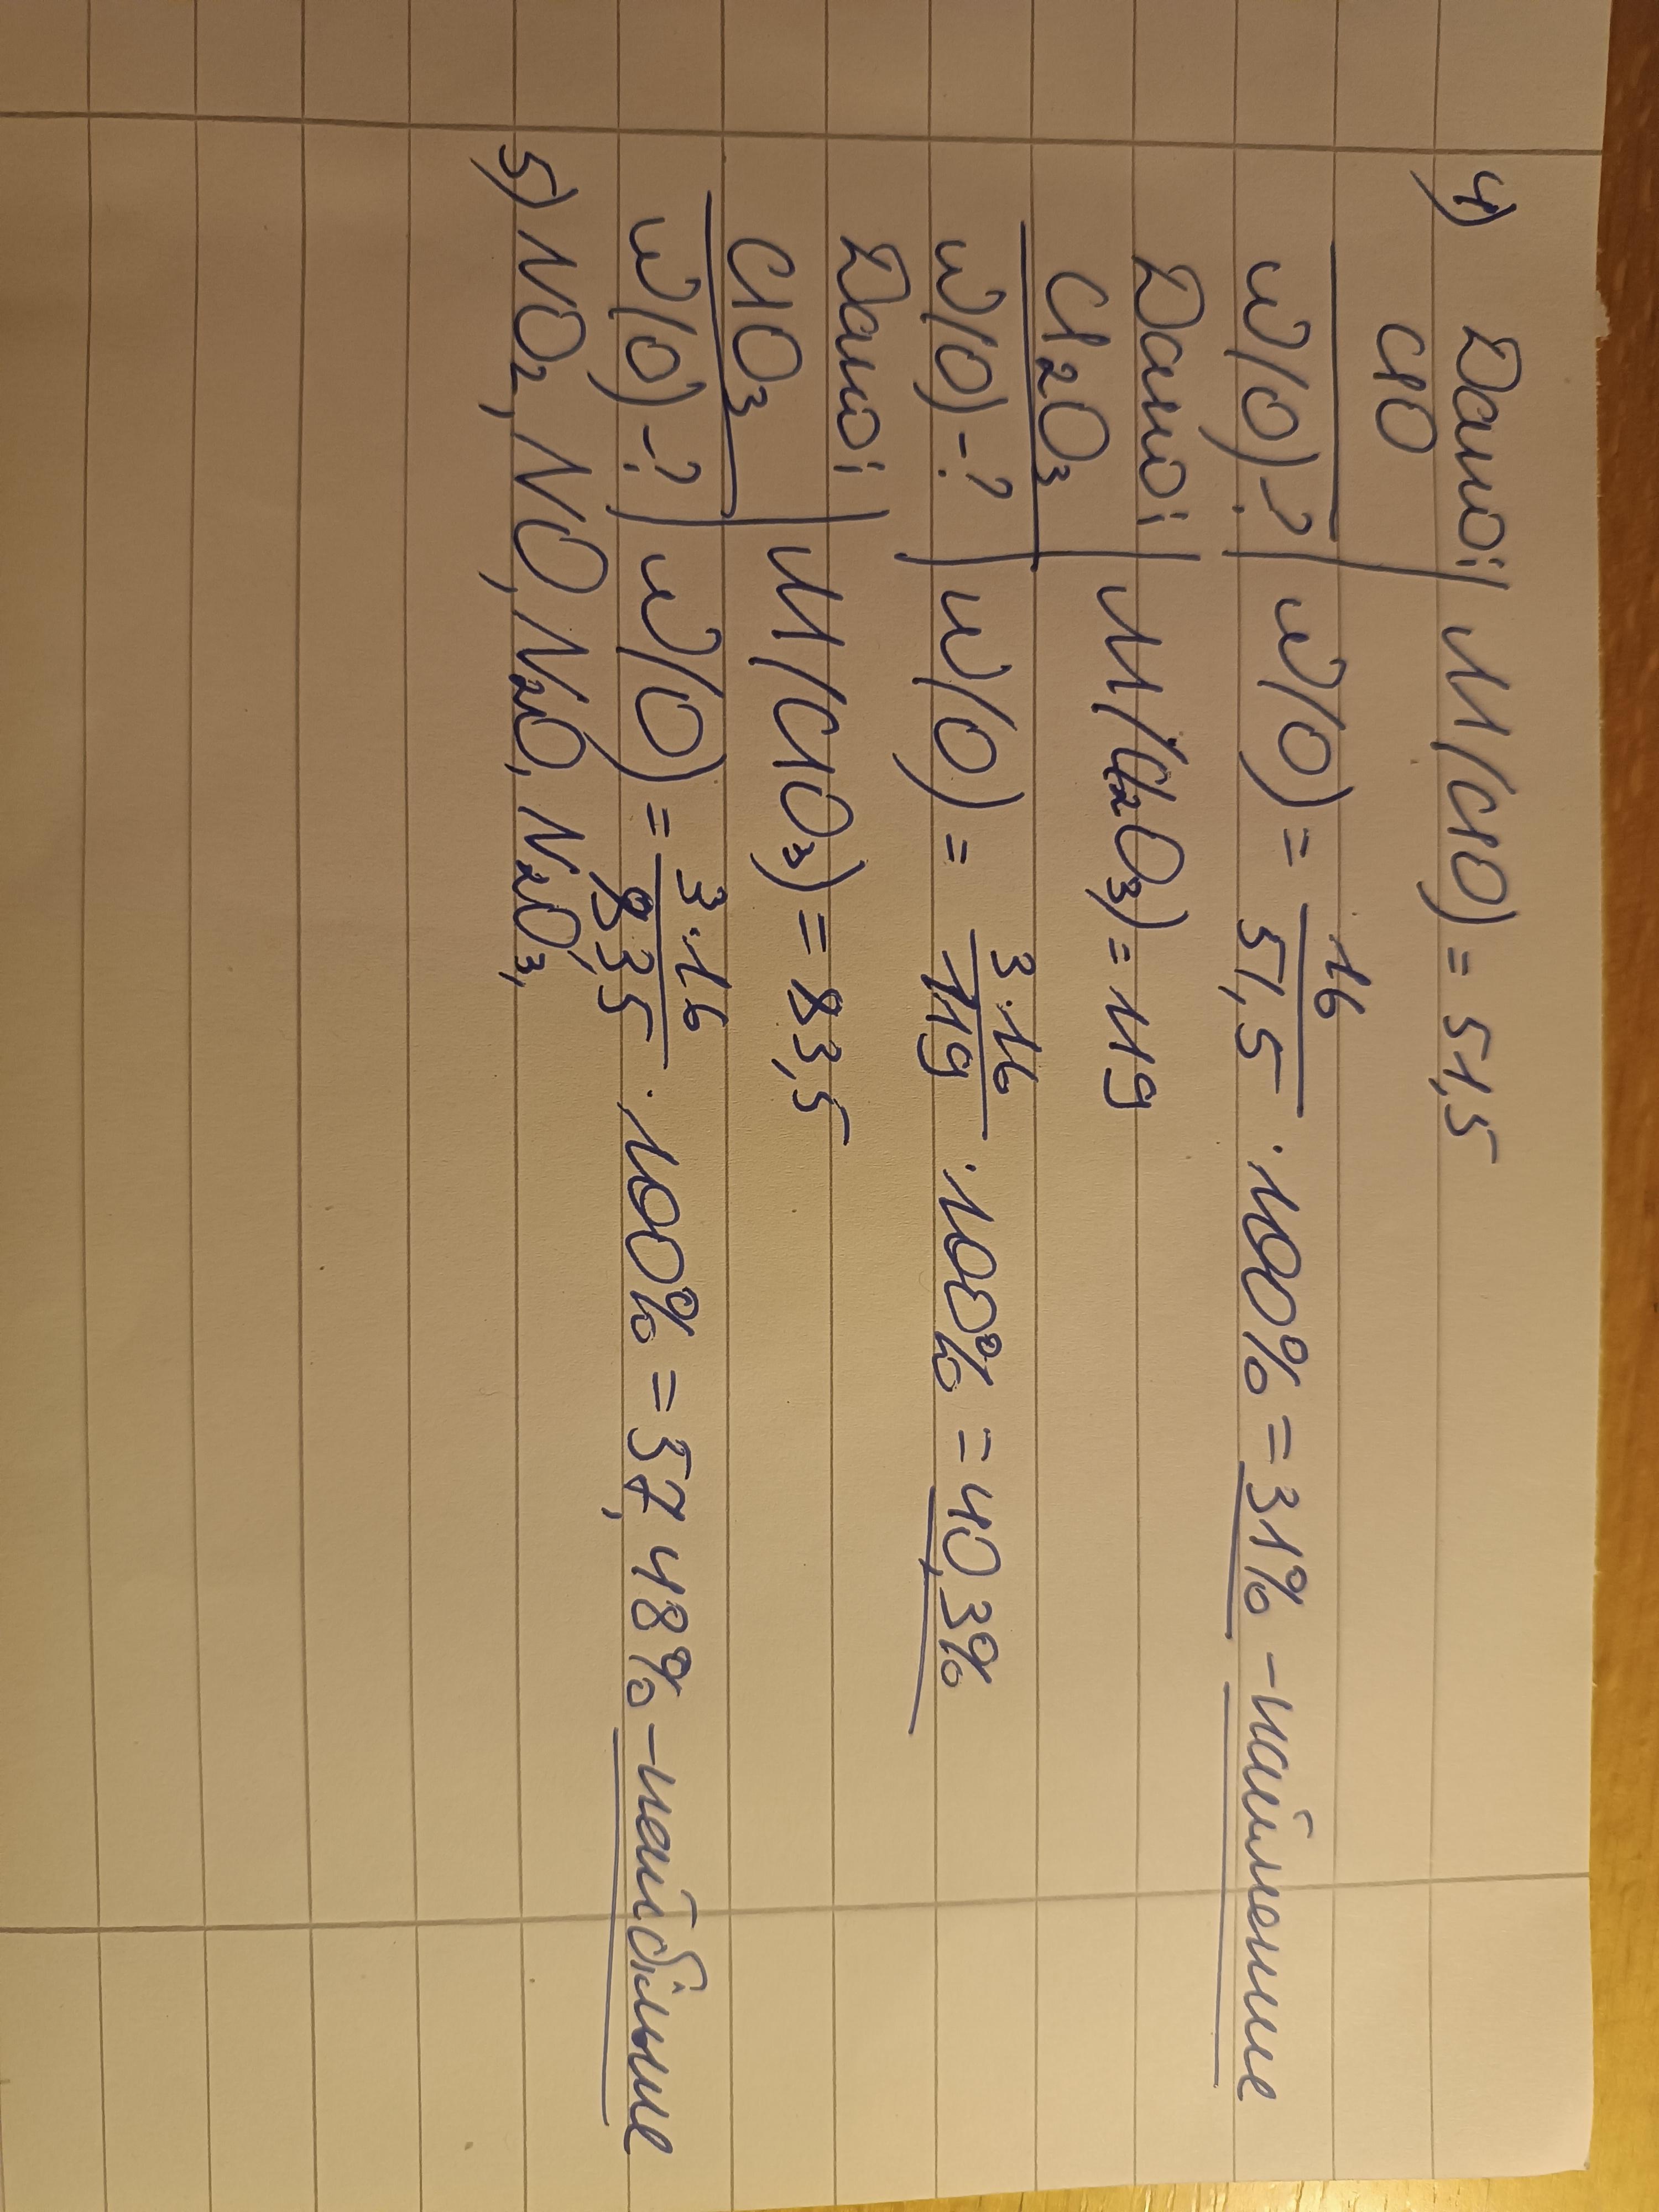 4) Дано: M(ClO) = 51,5
ClO
W(O)-? W(O) = 16/51,5 · 100% = 31% - найменше
Дано: M(Cl₂O₃) = 119
Cl₂O₃
W(O)-? W(O) = 3·16/119 · 100% = 40,3%
Дано: M(ClO₃) = 83,5
ClO₃
W(O)-? W(O) = 3·16/83,5 · 100% = 57,48% - найбільше
5) NO₂, NO, N₂O, N₂O₃,